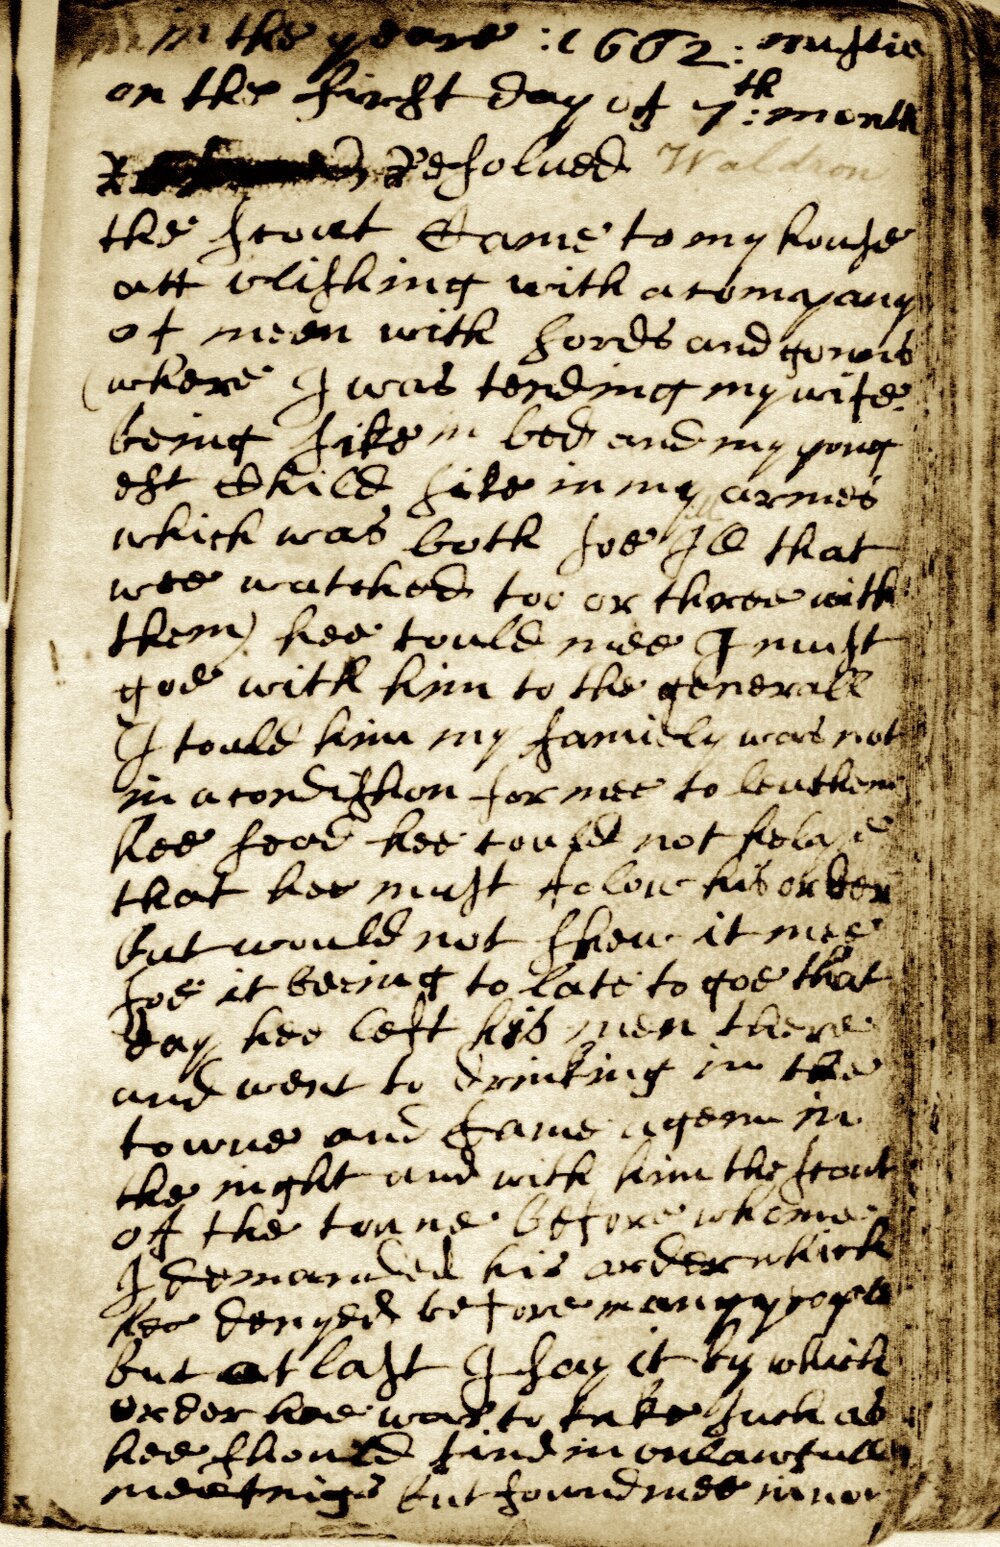 in the yeare : 1662 :
on the first day of 7th: month
Resolved Waldron
the scout Came to my house
att vlishing with a company
of meen with sords and gonns
(where I was tending my wife
being sike in bed and my yong
est Child sike in my armes
which was both soe Ill that
wee watched too or three with
them) hee tould mee I must
goe with him to the generall
I tould him my famiely was not
in a condishon for mee to leuthem
hee sead hee could not helpe
that hee must folow his order
but would not shew it mee
soe it beeing to late to goe that
day hee left his men there
and went to drinking in the
towne and Came agem in
the night and with him the scout
of the towne before whome
I demanded his order which
hee denyed before many people
but at last I say it by which
order hee was to take such as
hee should find in vnlawfull
meetnigs but found mee in nor